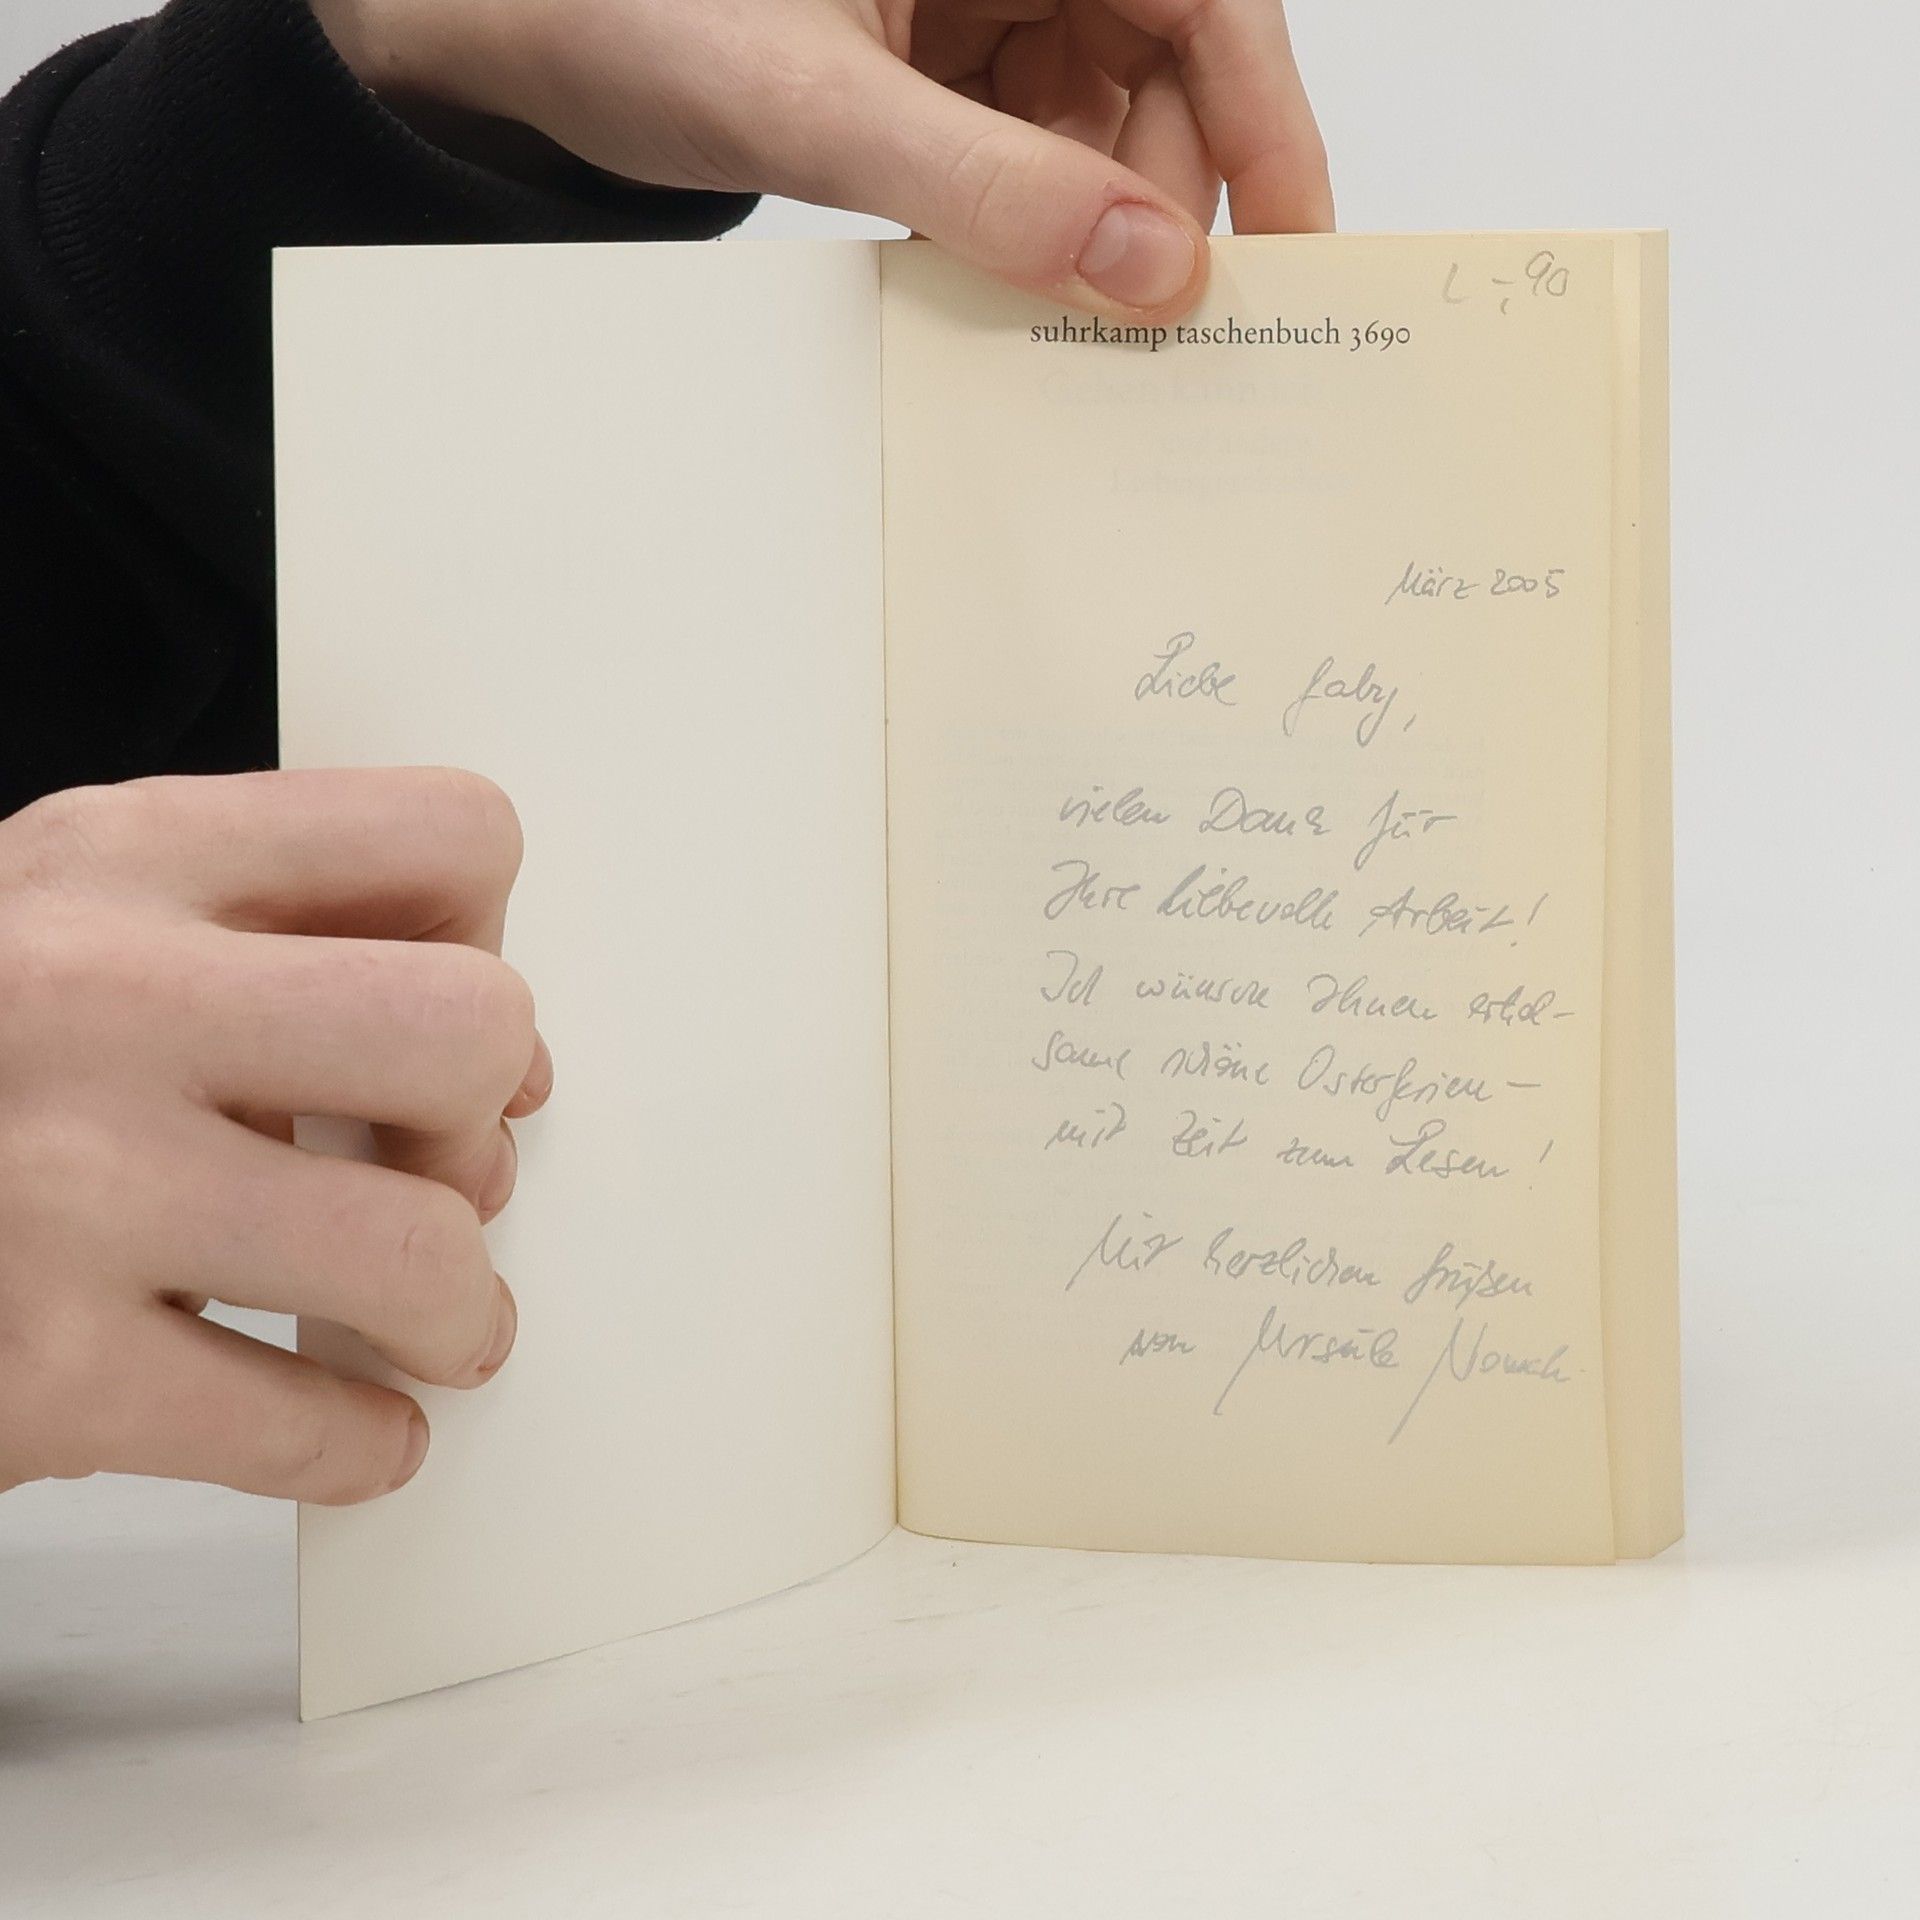 L -,90
suhrkamp taschenbuch 3690
März 2005
Liebe Gaby,
vielen Dank für
Ihre liebevolle Arbeit!
Ich wünsche Ihnen erhol-
same schöne Osterferien –
mit Zeit zum Lesen!
Mit herzlichen Grüßen
von Ursula